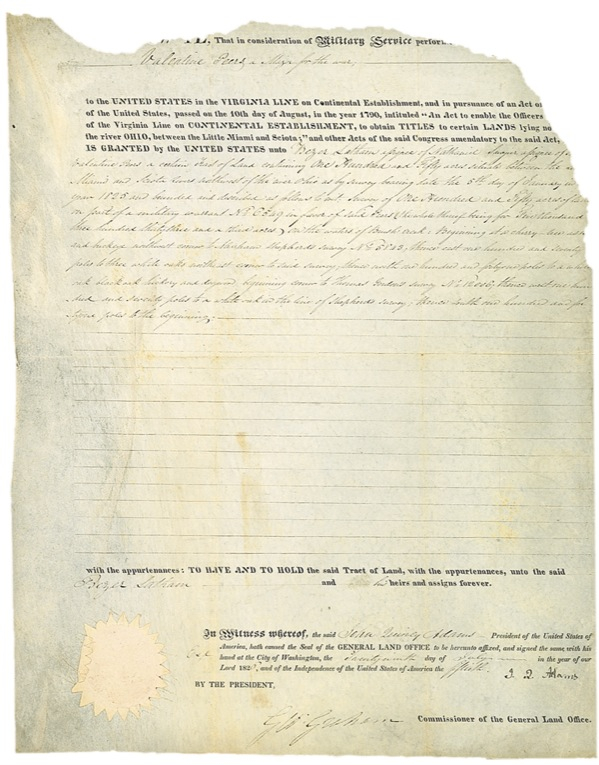 That in consideration of Military Service perfor
Valentine Peers, a Major for the war,
to the UNITED STATES in the VIRGINIA LINE on Continental Establishment, and in pursuance of an Act o
of the United States, passed on the 10th day of August, in the year 1790, intituled "An Act to enable the Officers
of the Virginia Line on CONTINENTAL ESTABLISHMENT, to obtain TITLES to certain LANDS lying no
the river OHIO, between the Little Miami and Sciota;" and other Acts of the said Congress amendatory to the said Act,
IS GRANTED by the UNITED STATES unto Bozer Latham assignee of Nathaniel assignee of
Valentine Peers a certain tract of Land containing One Hundred and Fifty acres situate between the
Miami and Sciota rivers northwest of the river Ohio as by survey bearing date the 5th day of January in
year 1825 and bounded and described as follows to wit, Survey of One Hundred and Fifty acres of
on part of a military warrant No. in favor of said
three hundred thirty three and a third acres, on the waters of Brush creek. Beginning at a cherry
and buckeye northwest corner to Abraham Shepherds survey No. thence east one hundred and seventy
poles to three white oaks northeast corner to said survey, thence north one hundred and poles to a
oak black oak hickory and dogwood beginning corner to Thomas survey No. thence west one hun
dred and seventy poles to a white oak in the line of Shepherds survey; thence south one hundred and
poles to the beginning;
with the appurtenances: TO HAVE AND TO HOLD the said Tract of Land, with the appurtenances, unto the said
Bozer Latham and his heirs and assigns forever.
In Witness whereof, the said John Quincy Adams President of the United States of
America, hath caused the Seal of the GENERAL LAND OFFICE to be hereunto affixed, and signed the same with his
hand at the City of Washington, the day of in the year of our
Lord 182 and of the Independence of the United States of America the fiftieth.
J. Q. Adams
BY THE PRESIDENT,
Geo. Graham Commissioner of the General Land Office.